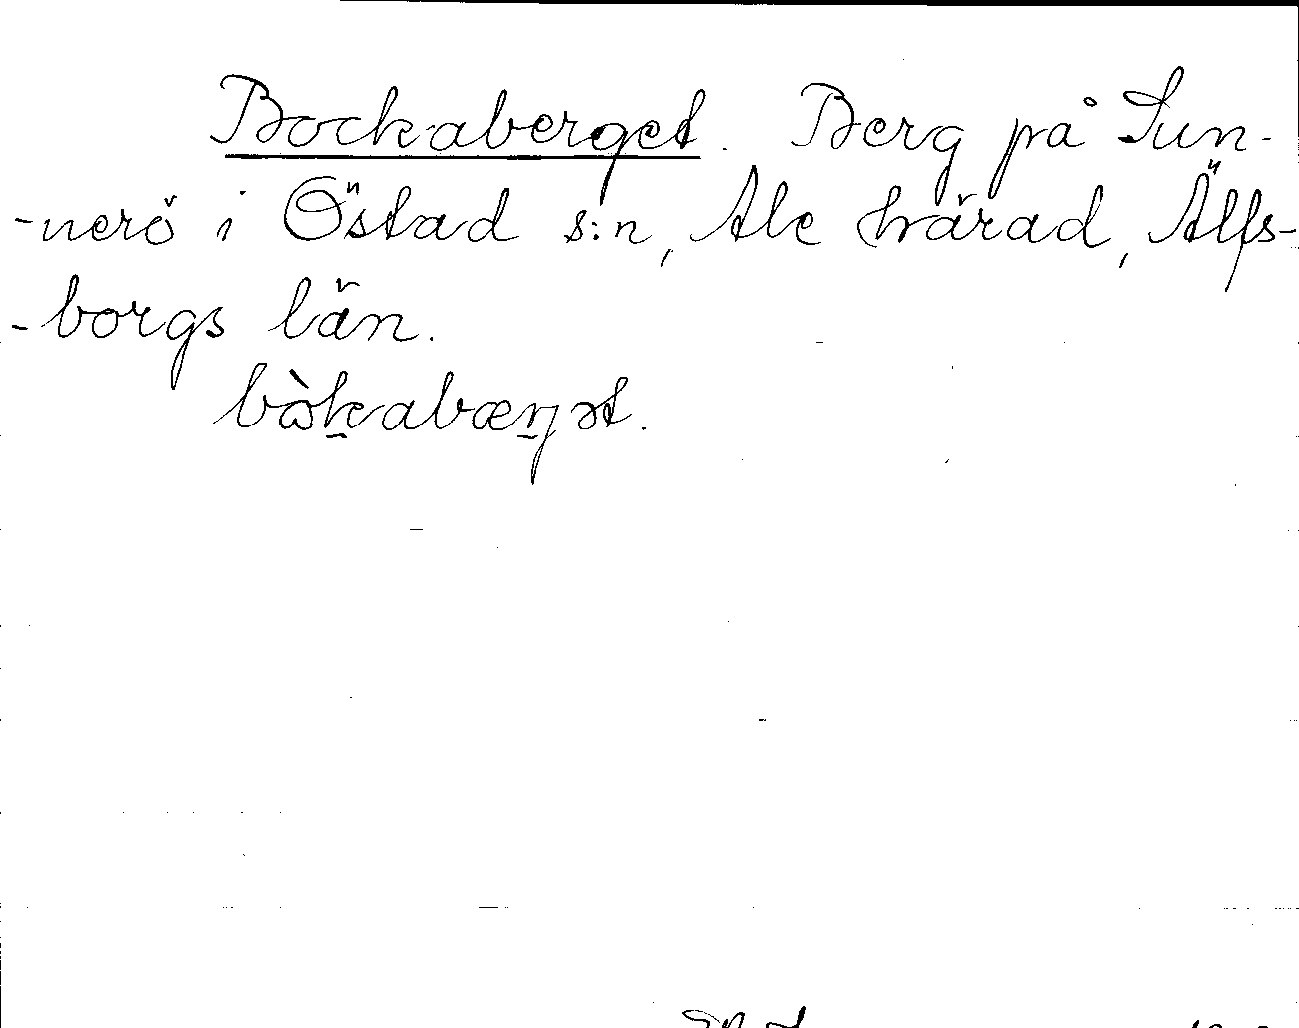 Bockaberget. Berg på Sun-
-nerö i Östad s:n, Ale härad, Älfs-
-borgs län.